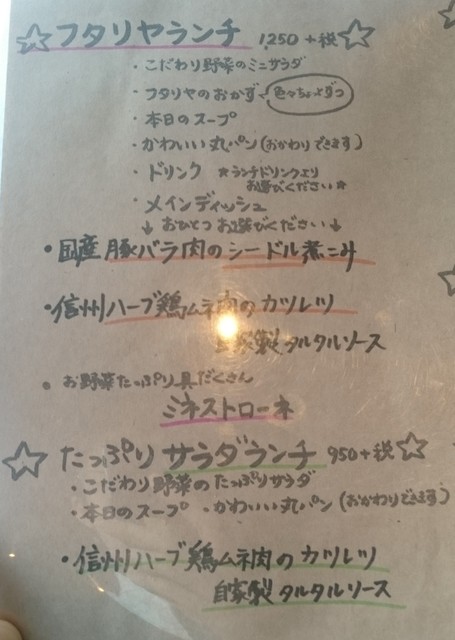 ☆フタリヤランチ 1,250+税☆
・こだわり野菜のミニサラダ
・フタリヤのおかず 色々ちょっとずつ
・本日のスープ
・かわいい丸パン(おかわりできます)
・ドリンク ★ランチドリンクより
お選びください★
・メインディッシュ
↓おひとつお選びください↓
・国産豚バラ肉のシードル煮こみ
・信州ハーブ鶏ムネ肉のカツレツ
自家製タルタルソース
・お野菜たっぷり具だくさん
ミネストローネ
☆たっぷりサラダランチ 950+税☆
・こだわり野菜のたっぷりサラダ
・本日のスープ ・かわいい丸パン(おかわりできます)
・信州ハーブ鶏ムネ肉のカツレツ
自家製タルタルソース